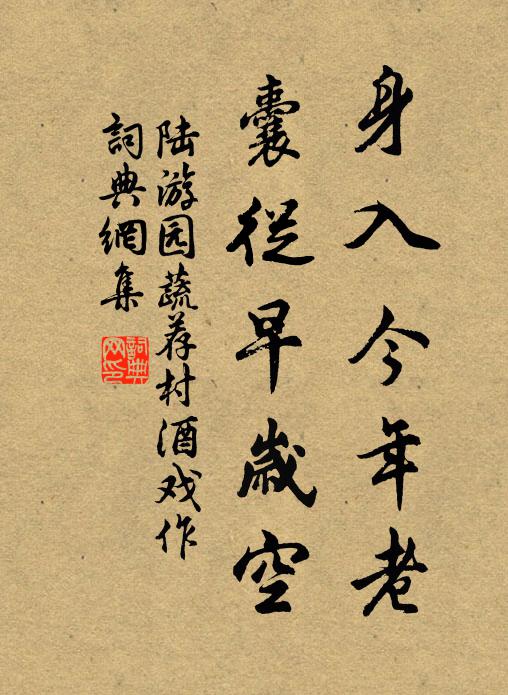 身入今年老
囊從早歲空
陆游园蔬荐村酒戏作
詞典網集
詞典网印